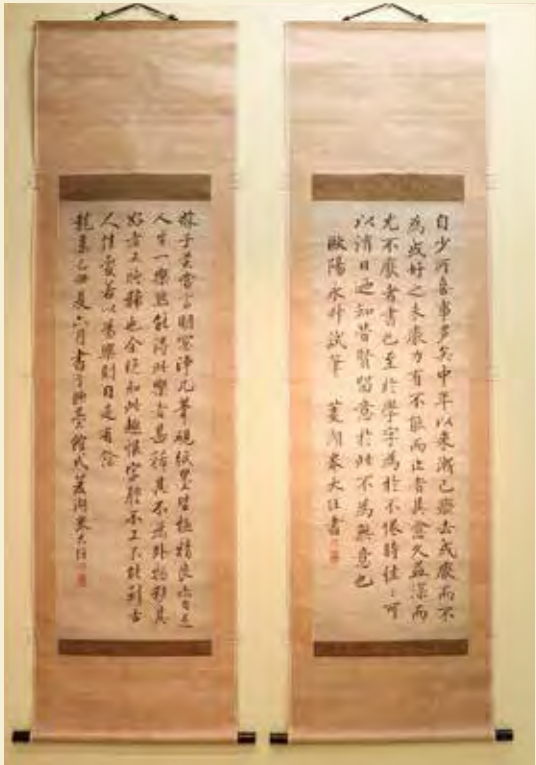 自少所喜事多矣中年以來漸已廢去或厭而不
為或好之未厭力有不能而止者其愈久益深而
尤不厭者書也至於學字為於不倦時往々可
以消日廼知昔賢留意於此不為無意也
歐陽永叔試筆 菱湖巻大任書
蘇子美嘗言明窓浄几筆硯紙墨皆極精良亦自是
人生一樂然能得此樂者甚稀其不為外物移其
好者又特稀也余晚知此趣恨字體不工不能到古
人佳處若以為樂則自足有餘
龍集乙酉夏六月書于 菱湖巻大任